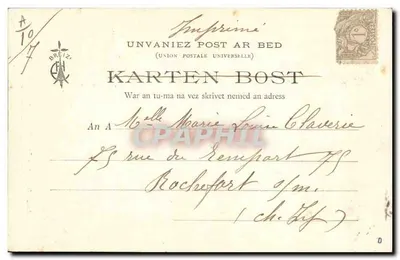 Imprimé
A
10
/7
BREIZ
UNVANIEZ POST AR BED
(UNION POSTALE UNIVERSELLE)
KARTEN BOST
War an tu-ma na vez skrivet nemed an adress
An A Melle Marie Louise Claverie
CPAPHIL
75 rue du Rempart 75
Rochefort s/m.
(ch. Inf)
D